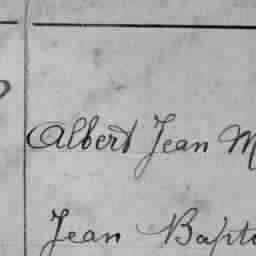 Albert Jean M
Jean Bapt